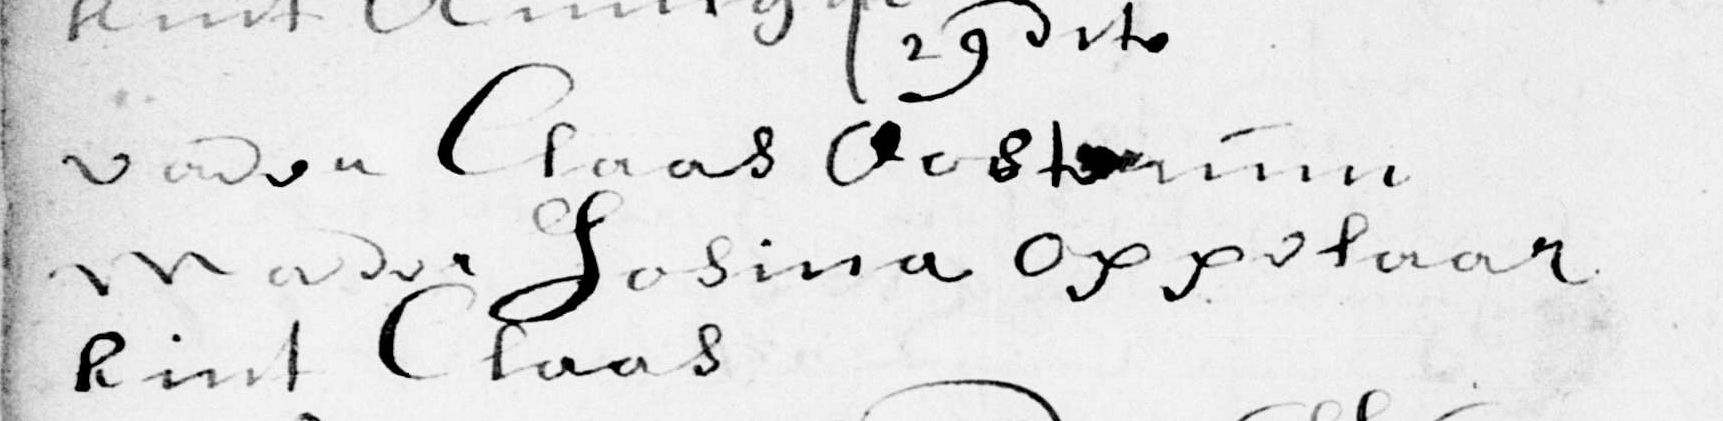 kint
29 dito
vader Claas Oosterum
mader Josina oppelaar
kint Claas